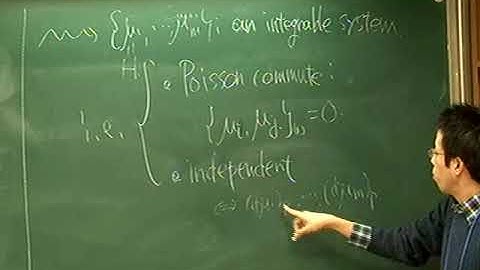 ⇝ {μ₁, ⋯ μₘ} : an integrable system.
H
i.e. { • Poisson commute :
{μᵢ, μⱼ}ω = 0.
• independent
⇔ (dμ₁)ₚ ⋯ (dμₘ)ₚ